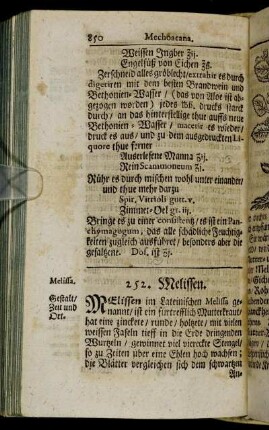 850 Mechoacana.
Weissen Ingber ʒij.
Engelsüß von Eichen ʒß.
Zerschneid alles gröblecht/extrahir es durch
digeriren mit dem besten Brandwein und
Bethonien-Wasser / (das von Aloe ist ab-
gezogen worden) jedes ℔ß, drucks starck
durch / an das hinterstellige thue auffs neue
Bethonien-Wasser / macerir es wieder/
druck es aus/ und zu dem ausgedruckten Li-
quore thue ferner
Auserlesene Manna ʒij.
Rein Scammoneum ʒj.
Rühr es durch mischen wohl unter einander/
und thue mehr darzu
Spir. Vitrioli gutt. v.
Zimmet-Oel gr. iij.
Bringt es zu einer consistentz / es ist ein Pan-
chymagogum, das alle schädliche Feuchtig-
keiten zugleich ausführet / besonders aber die
gesaltzene. Dos. ist ʒj.
Melissa. 252. Melissen.
Gestalt/
Zeit und
Ort.
MElissen im Lateinischen Melissa ge-
nannt/ ist ein fürtrefflich Mutterkraut/
hat eine zinckete / runde / höltzete / mit vielen
weissen Faseln tieff in die Erde dringenden
Wurtzeln / gewinnet viel viereckte Stengel/
so zu Zeiten über eine Ehlen hoch wachsen;
die Blätter vergleichen sich dem schwartzen
An-